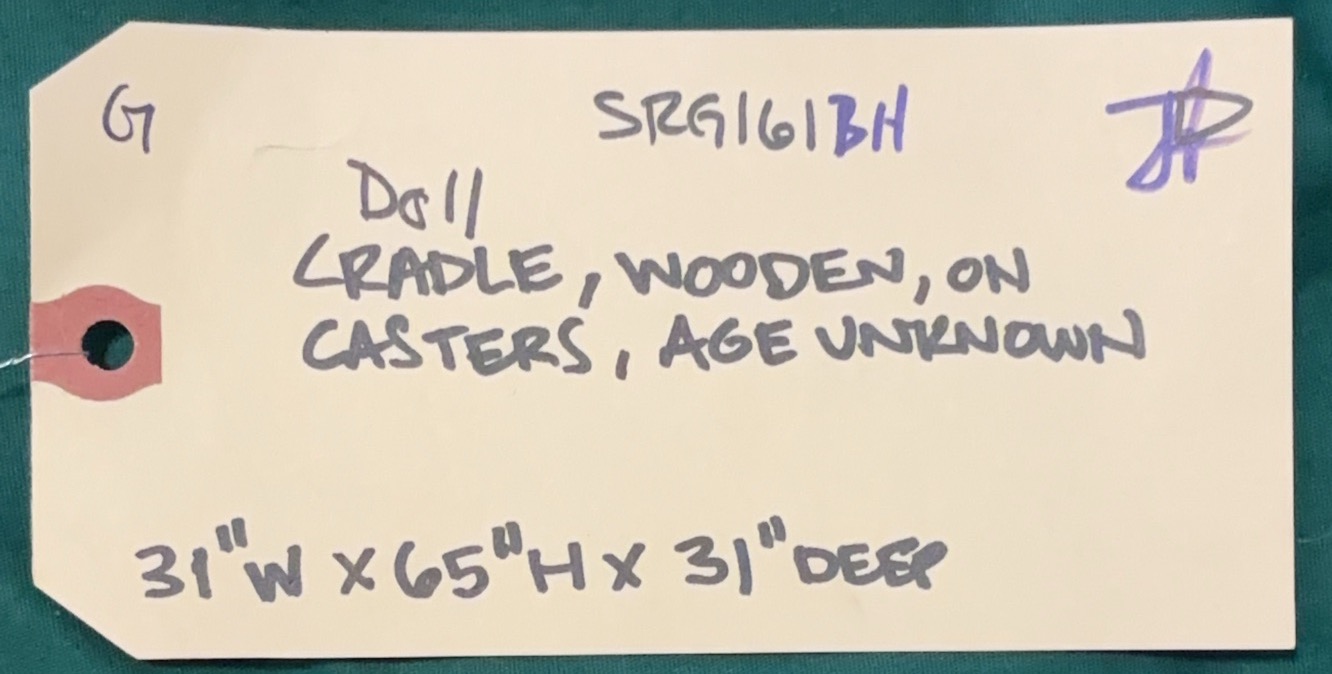 G SRG161BH
Doll
CRADLE, WOODEN, ON
CASTERS, AGE UNKNOWN
31"W X 65"H X 31" DEEP